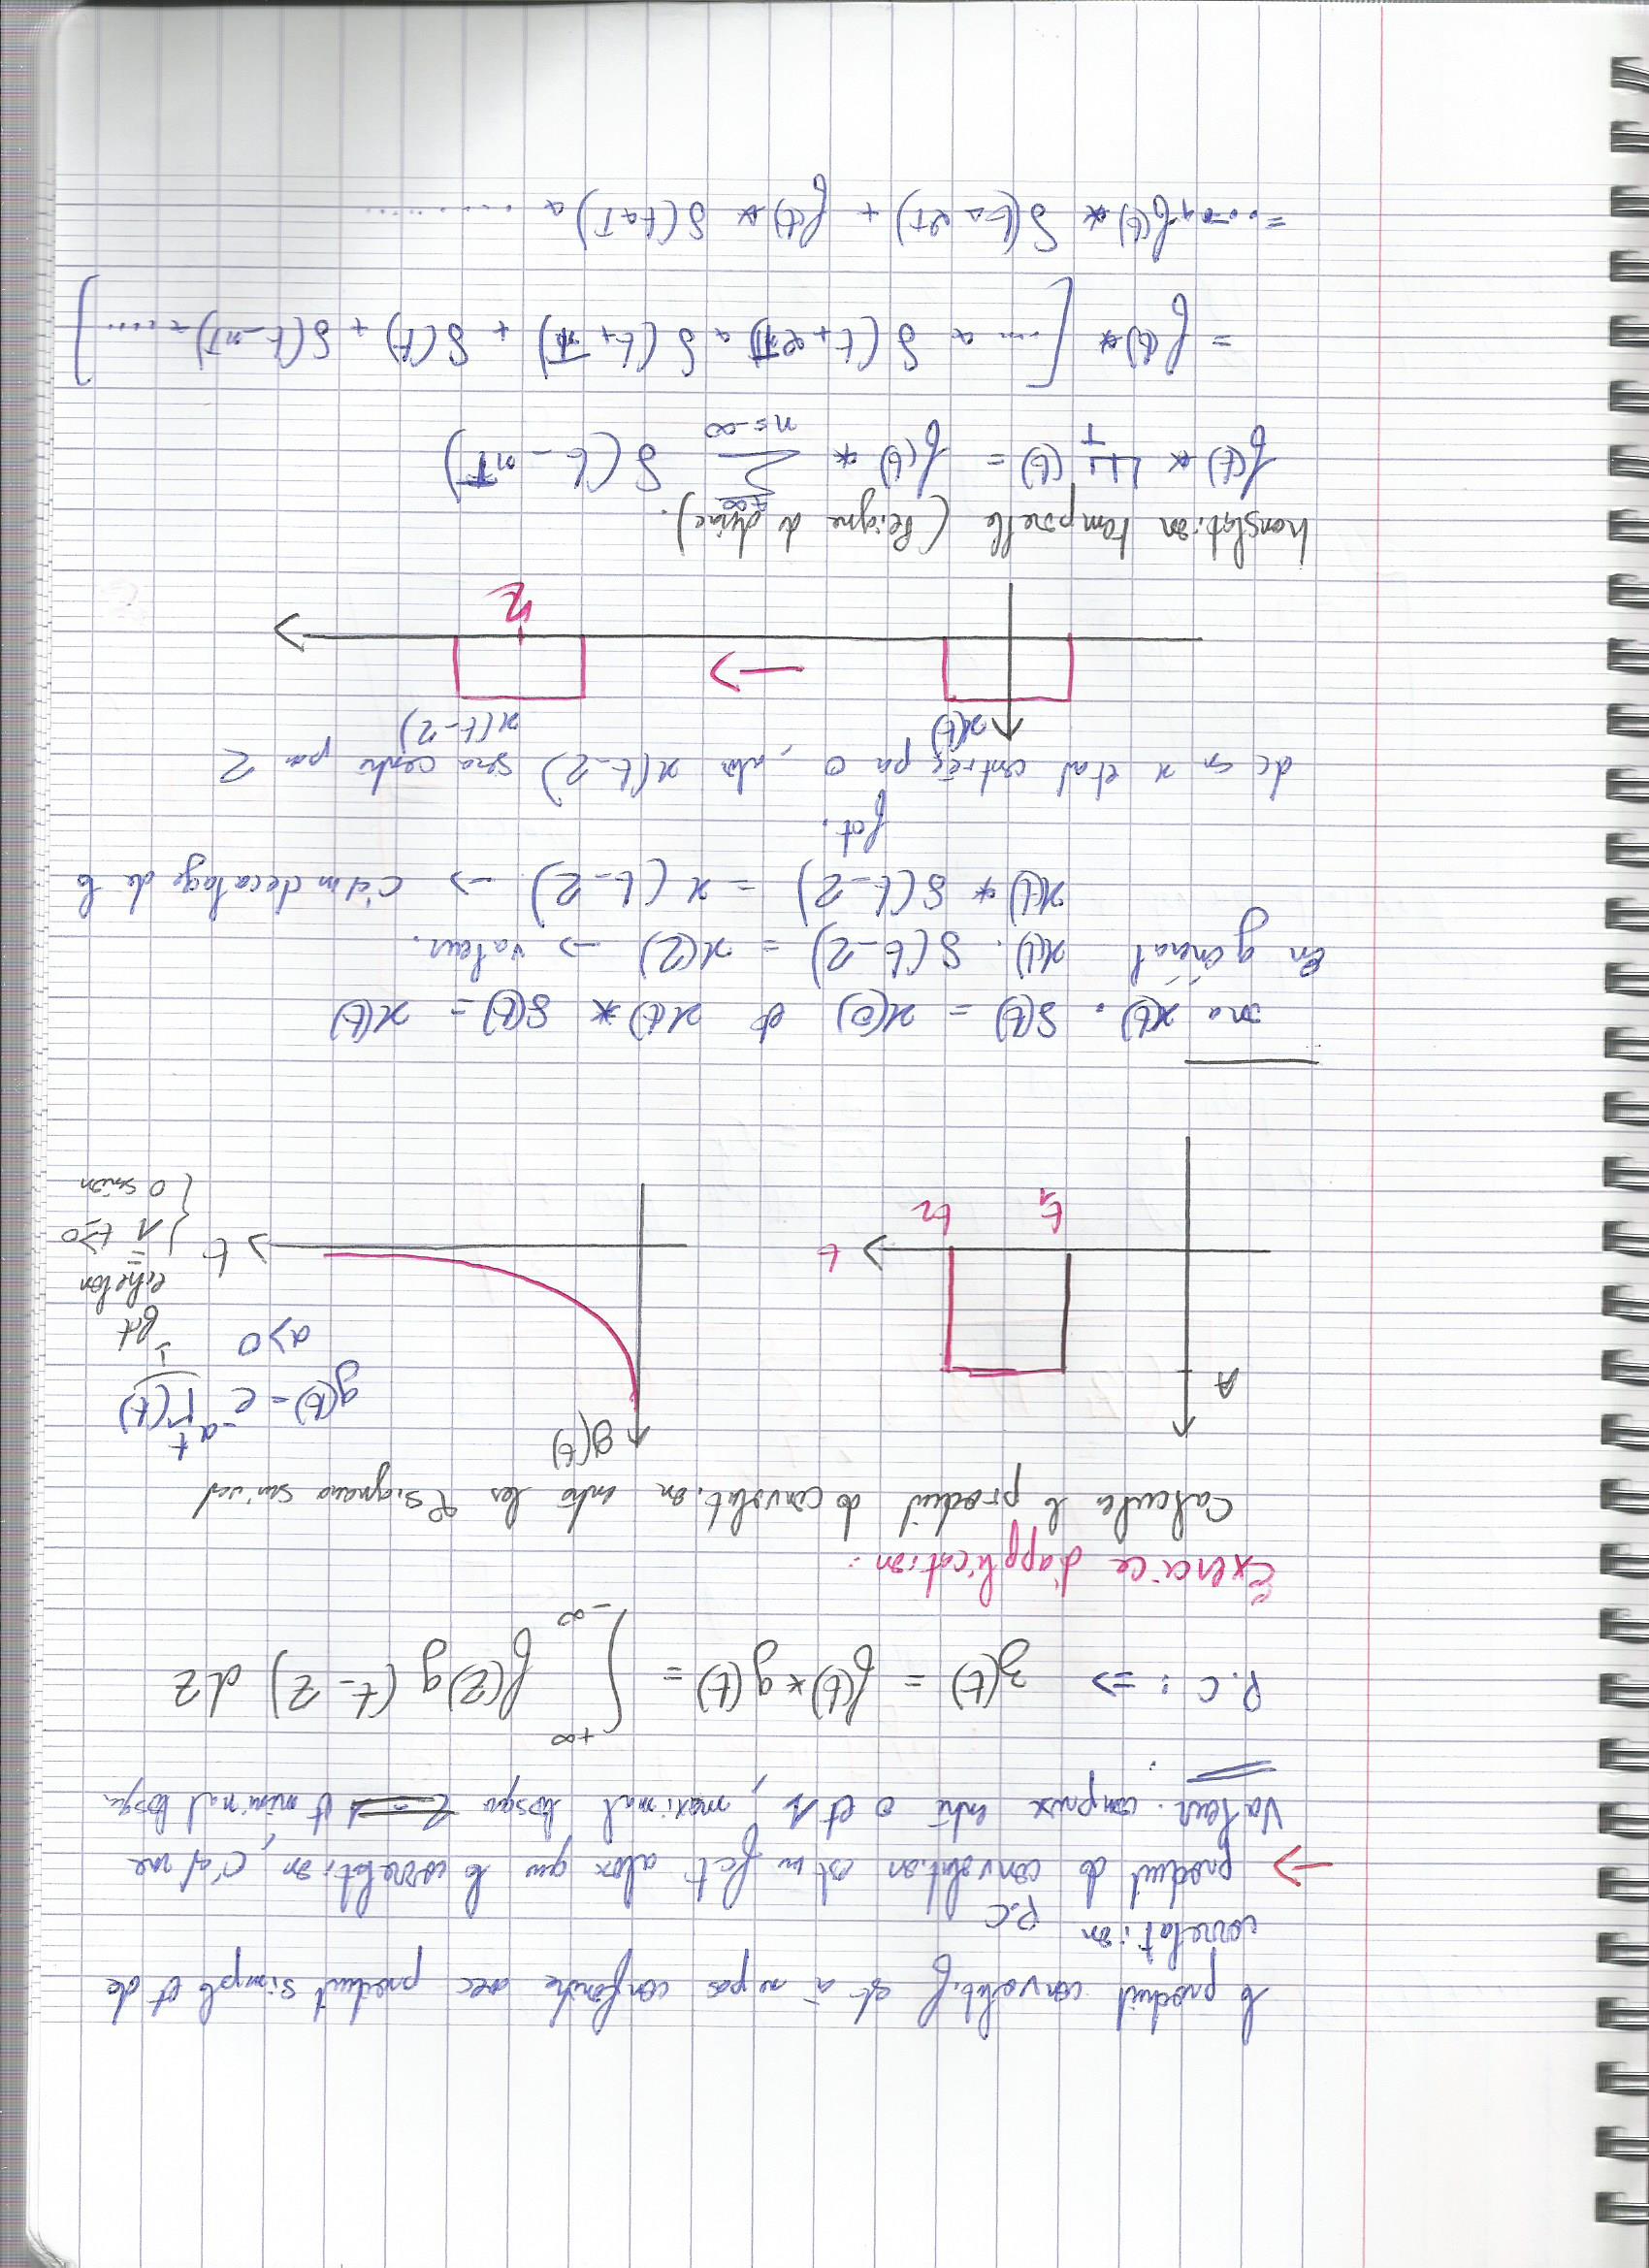 le produit convolutif est à ne pas confondre avec produit simple et de
corrélation P.C
→ produit de convolution est un fct alors que le corrélation, c'est une
valeur comprise entre 0 et 1, maximal lorsque et minimal lorsque
P.C : => z(t) = f(t) * g(t) = ∫_{-∞}^{+∞} f(z) g(t-z) dz
Exercice d'application :
Calculer le produit de convolution entre les 2 signaux suivant
A
t1 t2 t
g(t)
t
g(t) = e^{-at} Γ(t)
a>0
fct
échelon
= { 1 t≥0
{ 0 sinon
x(t) . δ(t) = x(0) et x(t) * δ(t) = x(t)
En général x(t) . δ(t-2) = x(2) → valeur.
x(t) * δ(t-2) = x(t-2) → c'est un décalage de la
fct.
dc si x était centrée par 0, alors x(t-2) sera centré par 2
x(t) x(t-2)
2
translation temporelle (Peigne de dirac).
f(t) * Ш_T(t) = f(t) * Σ_{n=-∞}^{+∞} δ(t-nT)
= f(t) * [ ... + δ(t+2T) + δ(t+T) + δ(t) + δ(t-nT) + .... ]
= ... + f(t) * δ(t+2T) + f(t) * δ(t+T) + ..........